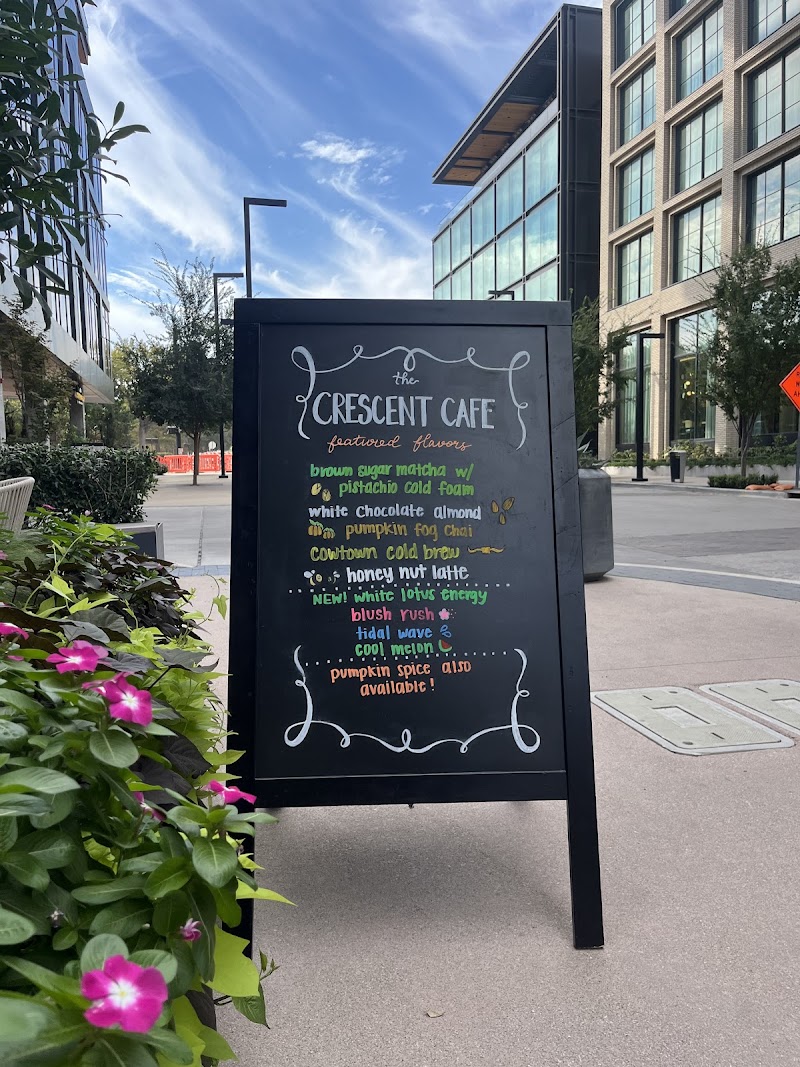 the
CRESCENT CAFE
featured flavors
brown sugar matcha w/
pistachio cold foam
white chocolate almond
pumpkin fog chai
cowtown cold brew
honey nut latte
NEW! white lotus energy
blush rush
tidal wave
cool melon
pumpkin spice also
available!